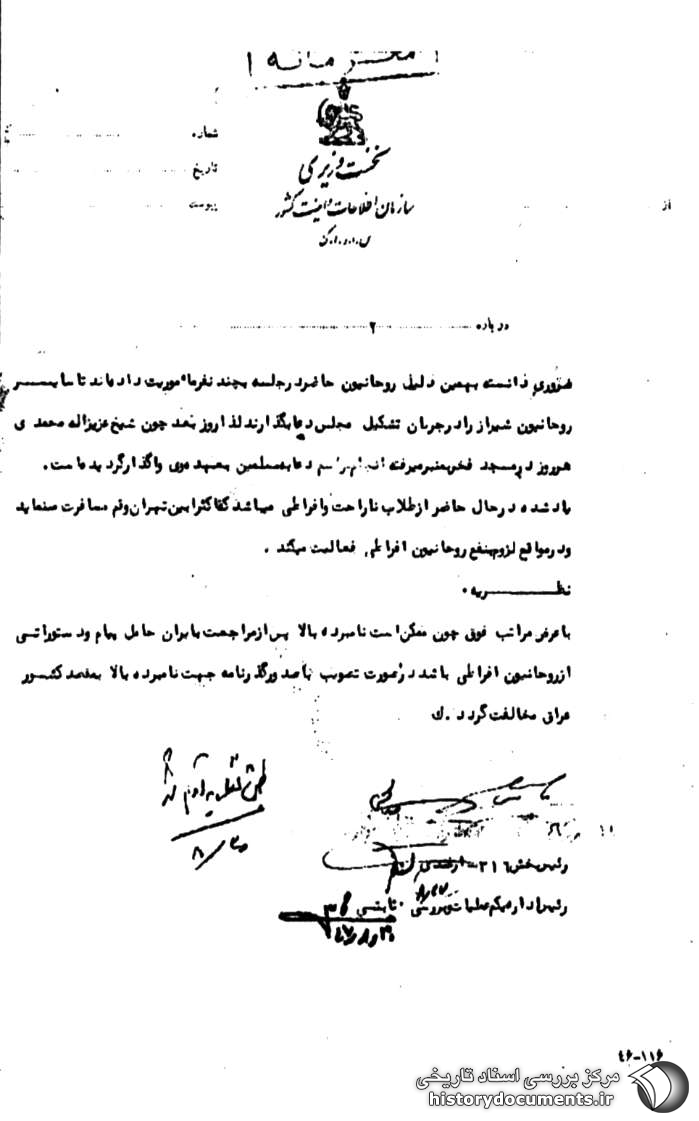 محرمانه
شماره
نخست وزیری
تاریخ
سازمان اطلاعات و امنیت کشور
از
پیوست
س.ا.و.ا.ک
درباره ۲
ضروری دانسته بهمین دلیل روحانیون حاضر در جلسه بچند نفر ماموریت داده‌اند تا سایر
روحانیون شیراز را در جریان تشکیل مجلس دعا بگذارند لذا روز بعد چون شیخ عزیزاله محمدی
هر روز در مسجد فخر بمنبر میرفته انجام مراسم دعا به مسلمین بعهده وی واگذار گردیده است.
یاد شده در حال حاضر از طلاب ناراحت و افراطی میباشد که اکثرا بین تهران و قم مسافرت مینماید
و در مواقع لزوم بنفع روحانیون افراطی فعالیت میکند.
نظریه.
با عرض مراتب فوق چون ممکن است نامبرده بالا پس از مراجعت بایران حامل پیام و دستوراتی
از روحانیون افراطی باشد در صورت تصویب با صدور گذرنامه جهت نامبرده بالا بمقصد کشور
عراق مخالفت گردد. ك
۸/۲۰
رئیس بخش ۳۱۶ - ازغندی
رئیس اداره یکم عملیات و بررسی. ثابتی
۴۷/۸/۲۰
۴۶-۱۱۶
مرکز بررسی اسناد تاریخی
historydocuments.ir